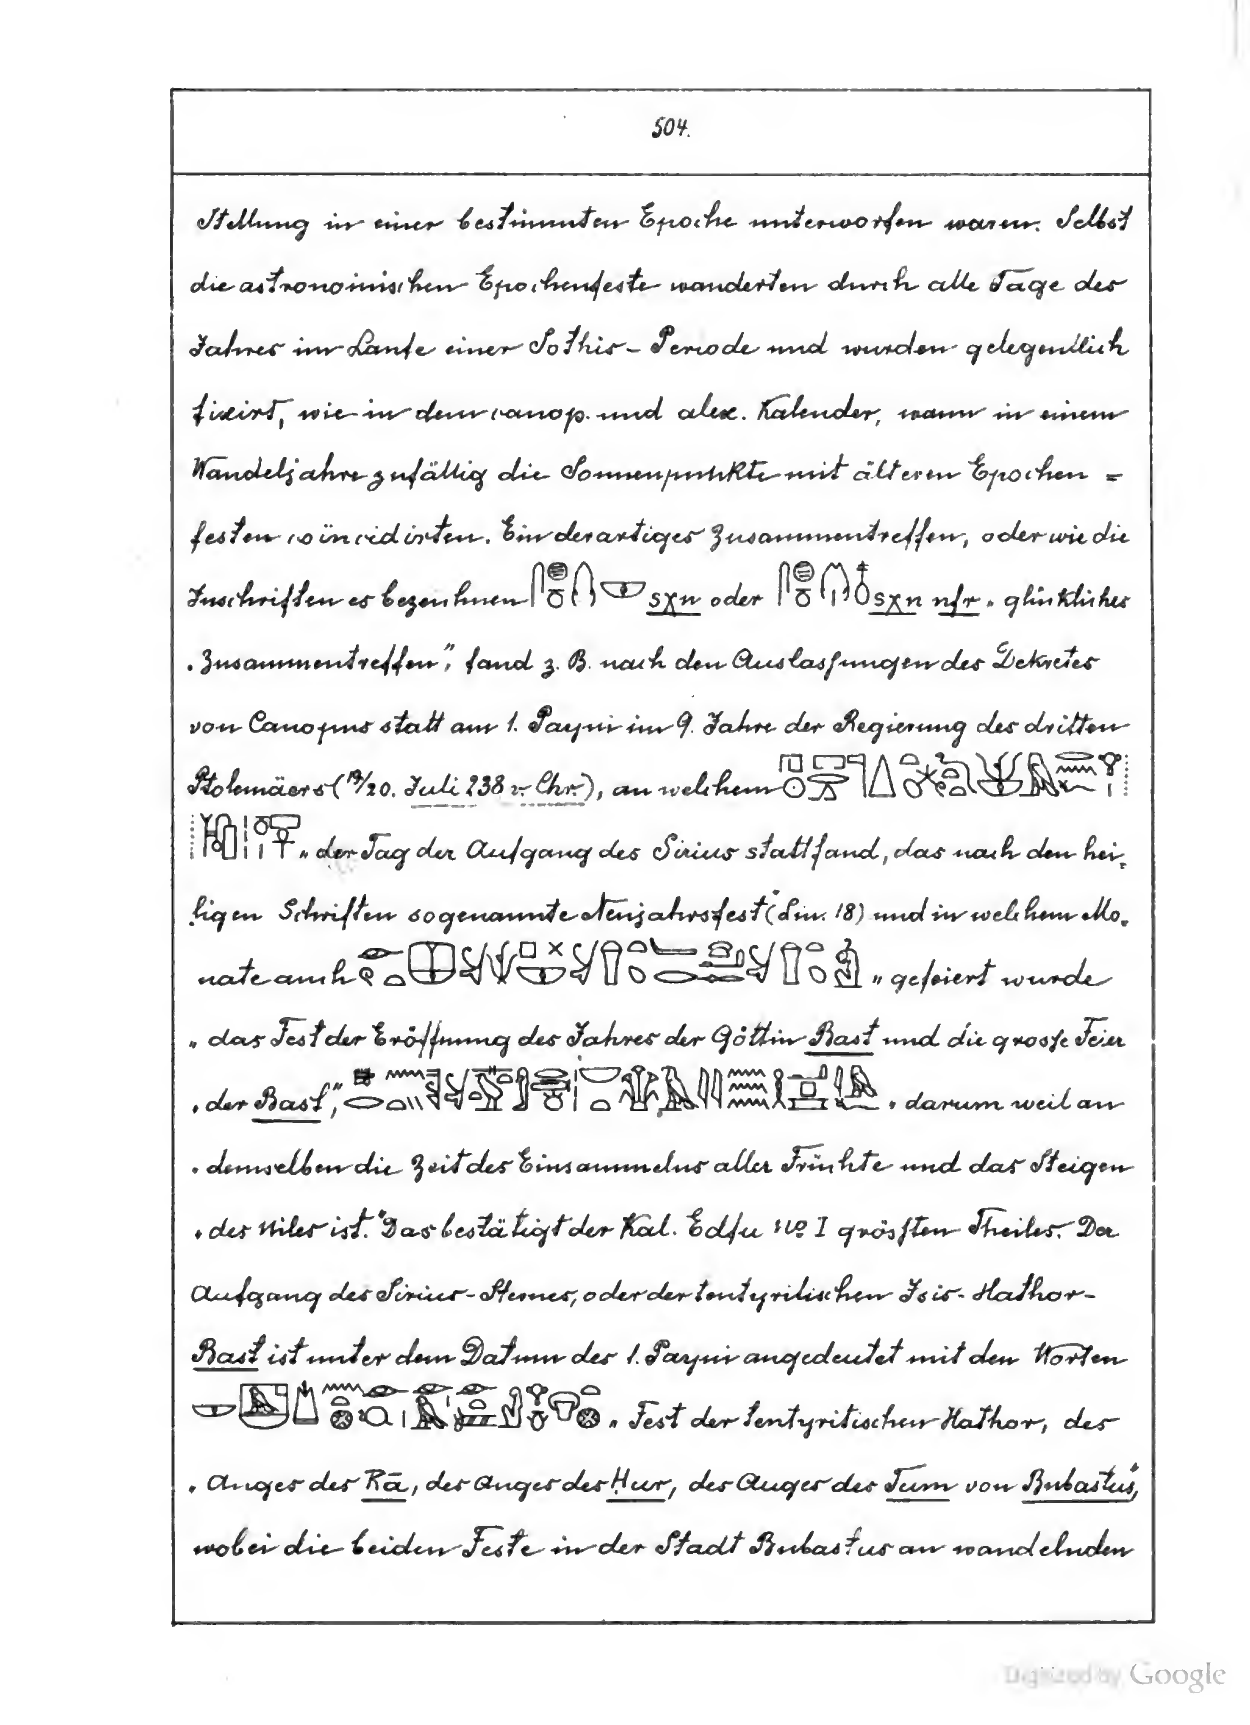 504.
Stellung in einer bestimmten Epoche unterworfen waren. Selbst
die astronomischen Epochenfeste wanderten durch alle Tage des
Jahres im Laufe einer Sothis-Periode und wurden gelegentlich
fixirt, wie in dem canop. und alex. Kalender, wann in einem
Wandeljahre zufällig die Sonnenpunkte mit älteren Epochen=
festen coïncidirten. Ein derartiges Zusammentreffen, oder wie die
Inschriften es bezeichnen sχn oder sχn nfr „glückliches
„Zusammentreffen“, fand z. B. nach den Auslassungen des Dekretes
von Canopus statt am 1. Payni im 9. Jahre der Regierung des dritten
Ptolemäers (19/20. Juli 238 v. Chr.), an welchem
„der Tag der Aufgang des Sirius stattfand, das nach den hei-
„ligen Schriften sogenannte Neujahrsfest“ (Lin. 18) und in welchem Mo-
nate auch „gefeiert wurde
„das Fest der Eröffnung des Jahres der Göttin Bast und die grosse Feier
„der Bast“, „darum weil an
„demselben die Zeit des Einsammelns aller Früchte und das Steigen
„des Niles ist.“ Das bestätigt der Kal. Edfu No I grössten Theiles. Der
Aufgang des Sirius-Sternes, oder der tentyritischen Isis-Hathor-
Bast ist unter dem Datum des 1. Payni angedeutet mit den Worten
„Fest der tentyritischen Hathor, des
„Auges des Rā, des Auges des Hur, des Auges des Tum von Bubastus“,
wobei die beiden Feste in der Stadt Bubastus an wandelnden
Digitized by Google